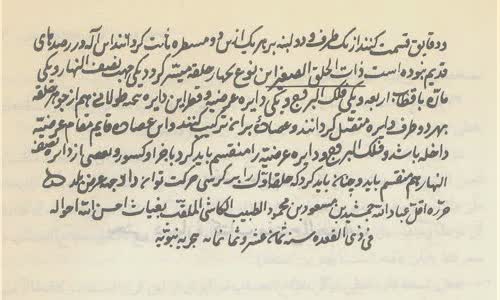 و دقایق قسمت کنند از یک طرف و دو لبنه بر هر یک ازین دو مسطره ثابت گردانند این آله در رصدهای
قدیم بوده است ذات الحلق الصغیر این نوع بچهار حلقه میسر گردد یکی جهت نصف النهار و یکی
مارّه باقطاب اربعه و یکی فلک البروج و یکی دایره عرضیه و قطر این دایره طولانی هم از جوهر حلقه
بهر دو طرف دایره متصل گردانند و عضاده بر آن ترکیب کنند و این عضاده قایم مقام عرضیه
داخله باشد و فلک البروج و دایره عرضیه را منقسم باید کرد باجزا و کسور و بعضی از دایره نصف
النهار هم منقسم باید و چنان باید کرد که حلقها را بر کرسی حرکت توان داد بجهة عرض بلد
حرره اقل عباد الله جمشید بن مسعود بن محمود الطبیب الکاشی الملقب بغیاث احسن الله احواله
فی ذی القعده سنه ثمان عشر و ثمانمائه هجریه نبویه